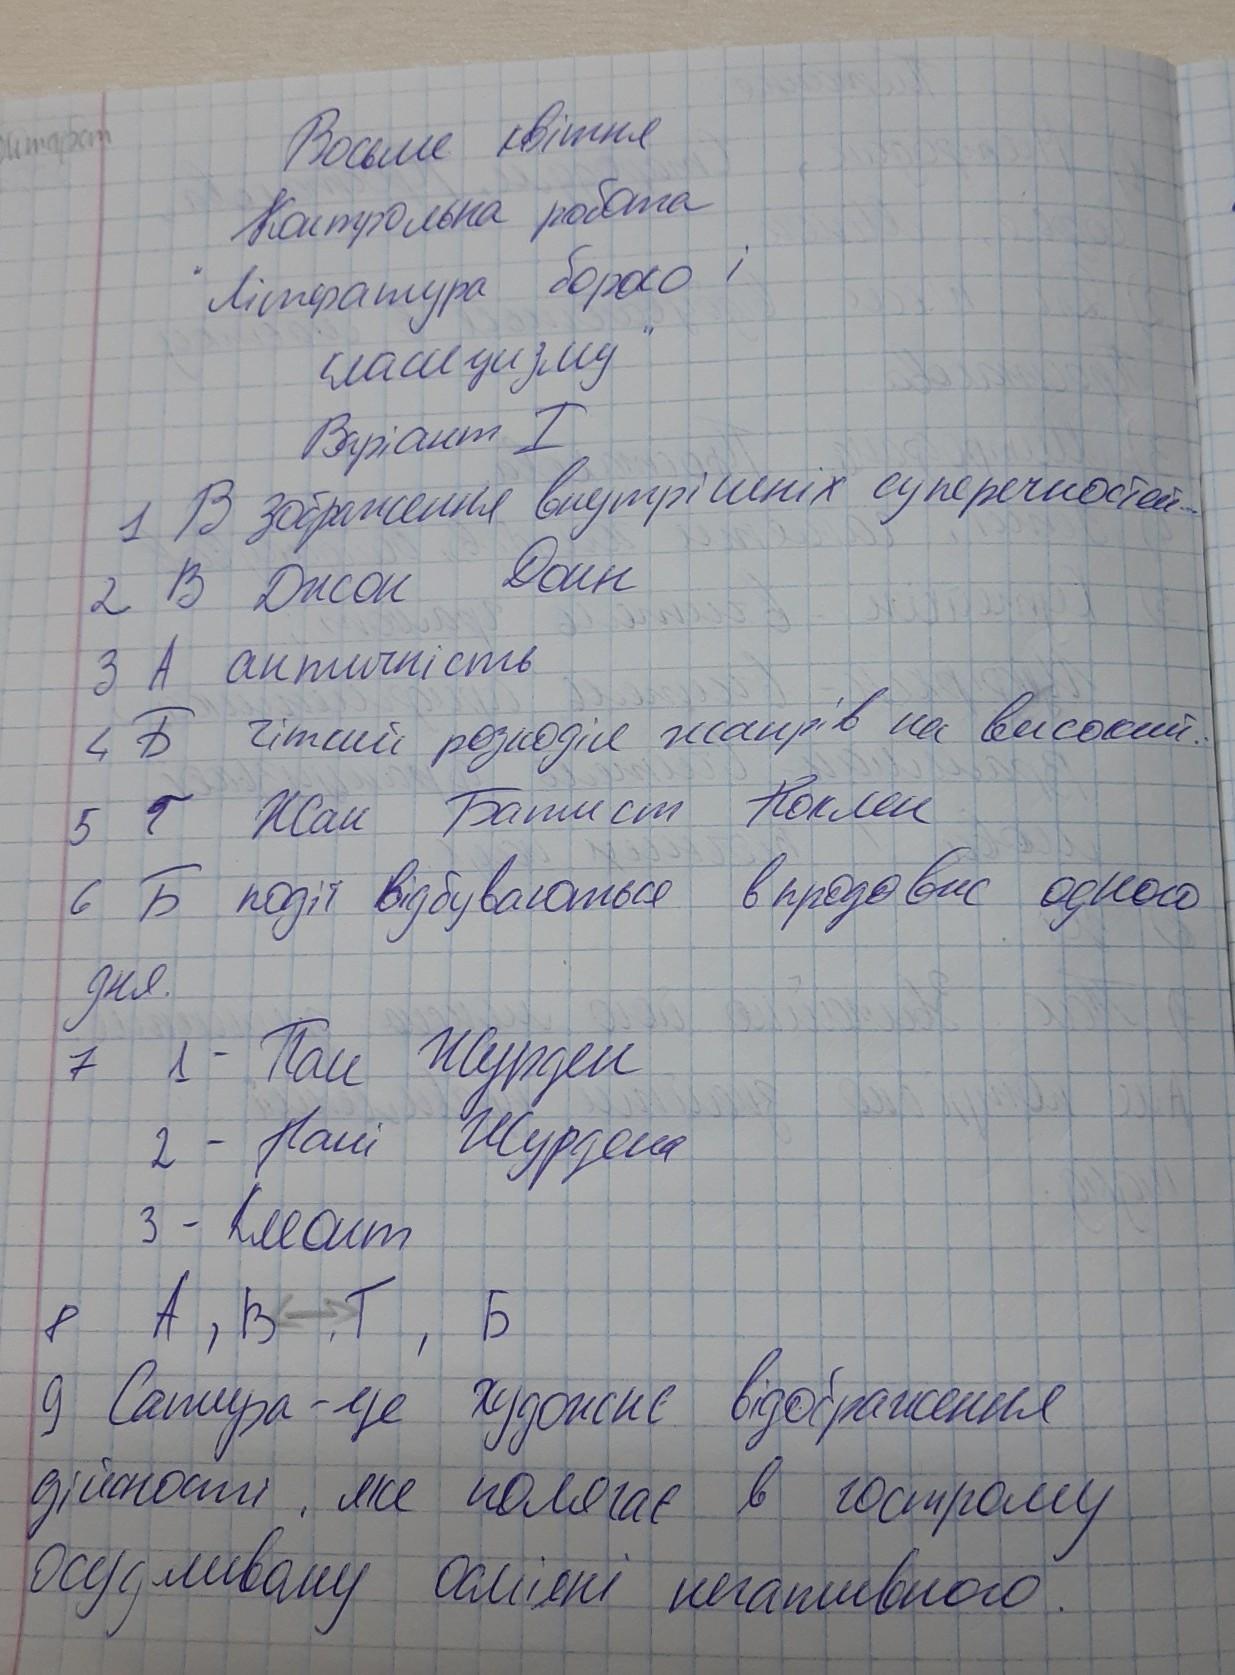 Восьме квітня
Контрольна робота
"Література бороко і
класицизму"
Варіант I
1 В зображення внутрішніх суперечностей...
2 В Джон Донн
3 А античність
4 Б чіткий розподіл жанрів на високий..
5 Г Жан Батист Поклен
6 Б події відбуваються впродовж одного
дня.
7 1 - Пан Журден
2 - Пані Журдена
3 - Клеонт
8 А, В ↔ Г, Б
9 Сатира - це художнє відображення
дійсності, яке полягає в гострому
осудливому осміяні негативного.